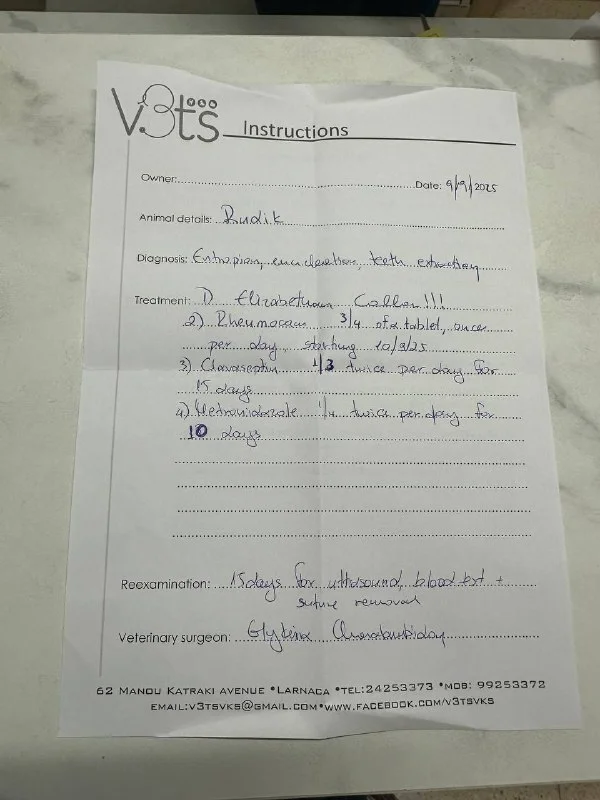 V3ts Instructions
Owner:
Date: 9/9/2025
Animal details: Rudik
Diagnosis: Entropion, enucleation, teeth extraction
Treatment: 1) Elizabethan Collar!!!
2) Rheumocam 3/4 of a tablet, once
per day, starting 10/9/25
3) Clavaseptin 1/3 twice per day for
15 days
4) Metronidazole 1/4 twice per day for
10 days
Reexamination: 15 days for ultrasound, blood test +
suture removal
Veterinary surgeon:
62 MANOU KATRAKI AVENUE •LARNACA •TEL:24253373 •MOB: 99253372
EMAIL:V3TSVKS@GMAIL.COM•WWW.FACEBOOK.COM/V3TSVKS